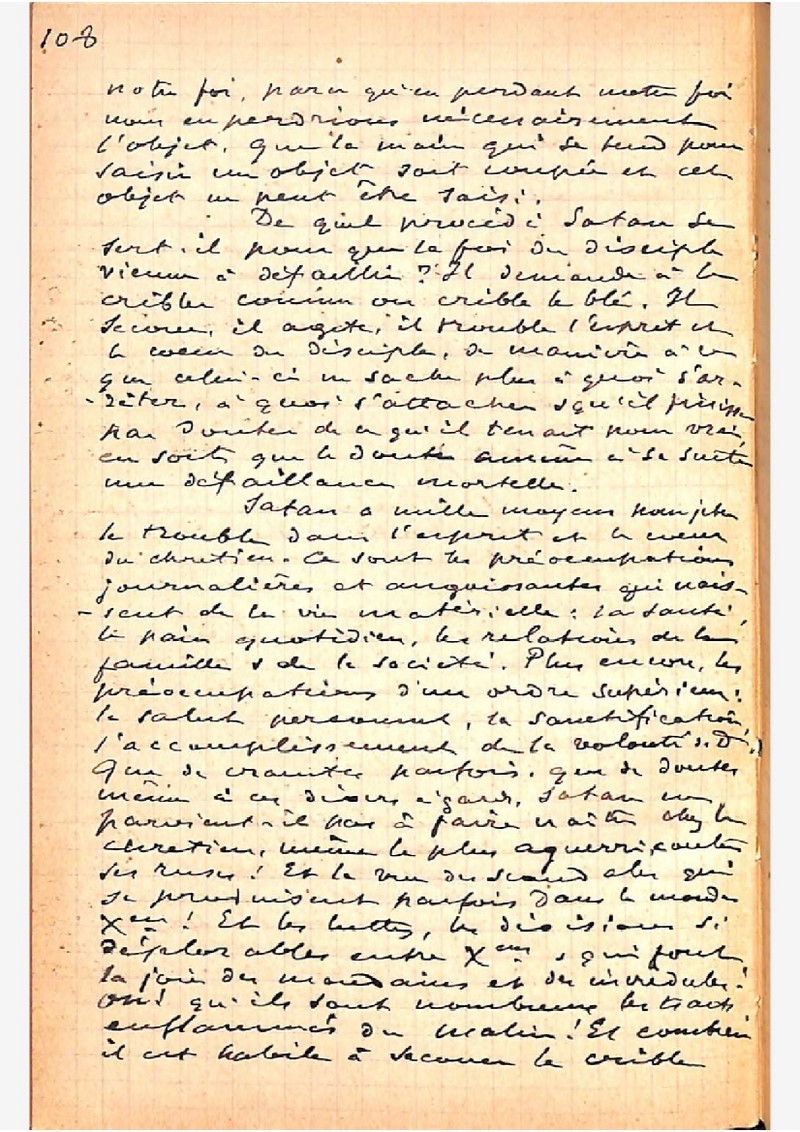 108
notre foi, parce qu'en perdant notre foi
nous en perdrions nécessairement
l'objet. Que la main qui se tend pour
saisir un objet soit coupée et cet
objet ne peut être saisi.
De quel procédé Satan se
sert-il pour que la foi du disciple
vienne à défaillir ? Il demande à le
cribler comme on crible le blé. Il
secoue, il agite, il trouble l'esprit et
le coeur du disciple, de manière à ce
que celui-ci ne sache plus à quoi s'ar-
-rêter, à quoi s'attacher & qu'il finisse
par douter de ce qu'il tenait pour vrai,
en sorte que le doute amène à sa suite
une défaillance mortelle.
Satan a mille moyens pour jeter
le trouble dans l'esprit et le coeur
du chrétien. Ce sont les préoccupations
journalières et angoissantes qui nais-
-sent de la vie matérielle : la santé,
le pain quotidien, les relations de la
famille & de la société. Plus encore, les
préoccupations d'un ordre supérieur :
le salut personnel, la sanctification,
l'accomplissement de la volonté de D.
Que de craintes parfois, que de doutes
même à ces divers égards, Satan ne
parvient-il pas à faire naître chez le
chrétien, même le plus aguerri contre
ses ruses ! Et la vue des scandales qui
se produisent parfois dans le monde
Xen ! Et les luttes, les divisions si
déplorables entre Xens & qui font
la joie des mondains et des incrédules !
Oh ! qu'ils sont nombreux les traits
enflammés du malin ! Et combien
il est habile à secouer le crible